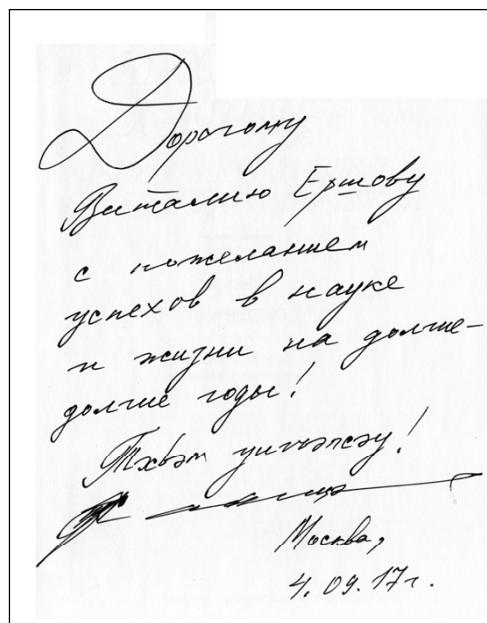 Дорогому
Виталию Ершову
с пожеланием
успехов в науке
и жизни на долгие-
долгие годы!
Тхьэм
Москва,
4.09.17г.